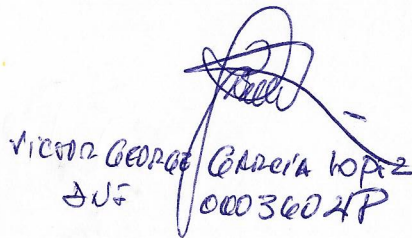 VICTOR GEORGE GARCIA LOPEZ
DNI 00036024P